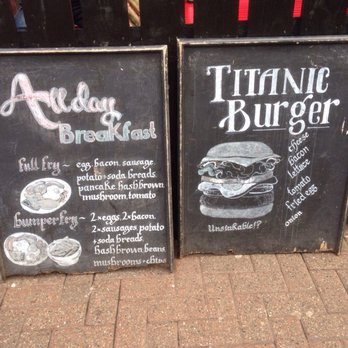 Allday
Breakfast
full fry ~ egg, bacon, sausage
potato + soda breads
pancake hashbrown
mushroom tomato
Bumper fry ~ 2x eggs, 2x bacon,
2x sausages, potato
+ soda breads
hashbrown, beans
mushrooms + chips
TITANIC
Burger
cheese
bacon
lettuce
tomato
fried egg
onion
Unsinkable!?